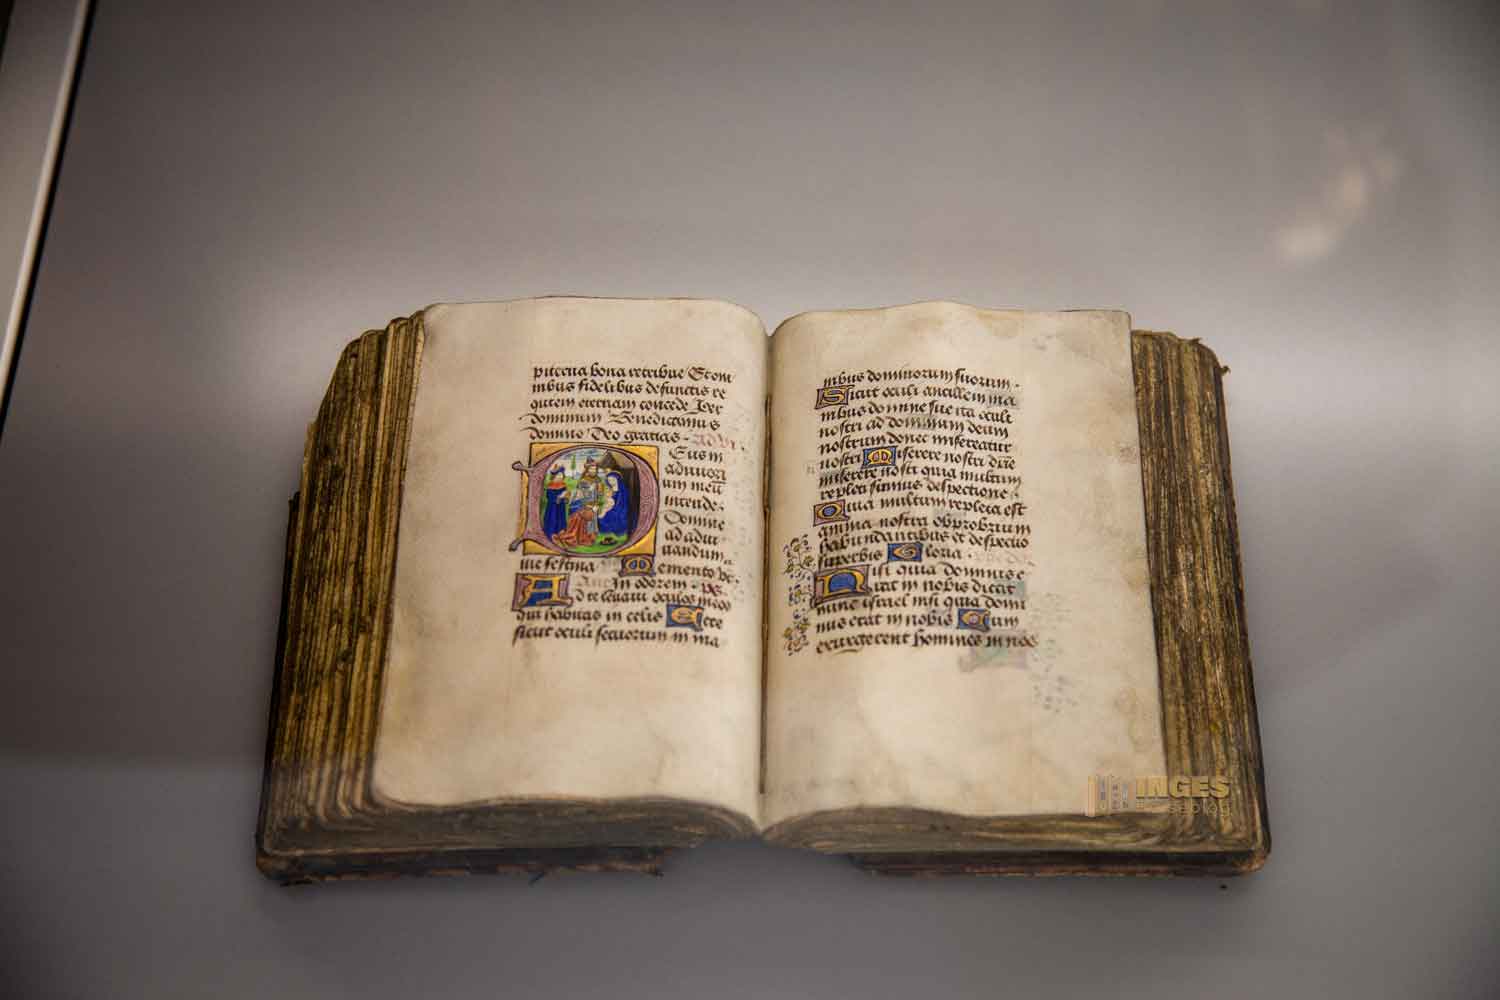 piterna bona retribue Et om
nibus fidelibus defunctis re
quiem eternam concede Per
dominum Benedicamus
domino Deo gratias
Deus in
adiutori
um meū
intende
Domine
ad adiu
uandum
me festina Memento
In odorem ps
Ad te leuaui oculos meos
qui habitas in celis Ecce
sicut oculi seruorum in ma
nibus dominorum suorum
Sicut oculi ancille in ma
nibus domine sue ita oculi
nostri ad dominum deum
nostrum donec misereatur
nostri Miserere nostri dn̄e
miserere nostri quia multum
repleti sumus despectione
Quia multum repleta est
anima nostra obprobrium
habundantibus et despectio
superbis Gloria
Nisi quia dominus e
rat in nobis dicat
nunc israel nisi quia domi
nus erat in nobis Cum
exurgerent homines in nos
INGES